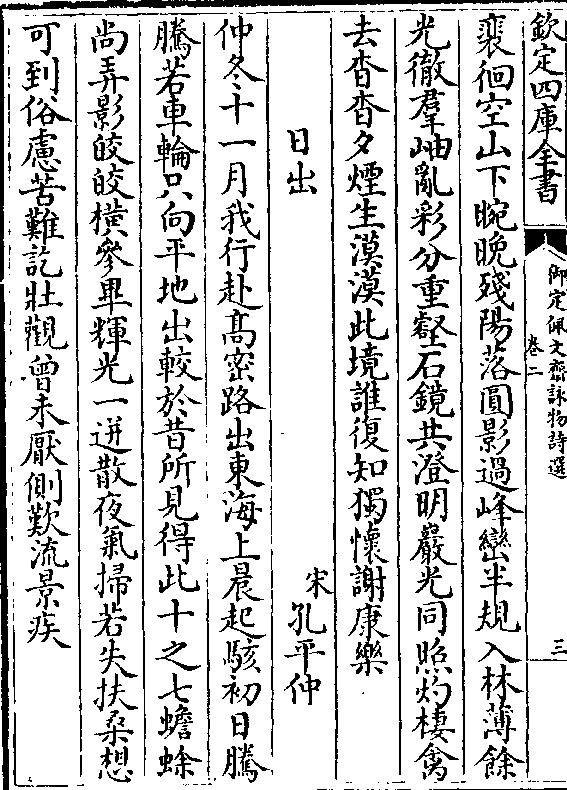 欽定四庫全書
御定佩文齋詠物詩選
卷二
三
裵徊空山下晼晚殘陽落圓影過峰巒半規入林薄餘
光徹羣岫亂彩分重壑石鏡共澄明巖光同照灼棲禽
去杳杳夕煙生漠漠此境誰復知獨懷謝康樂
日出
宋孔平仲
仲冬十一月我行赴高密路出東海上晨起駭初日騰
騰若車輪只向平地出較於昔所見得此十之七蟾蜍
尚弄影皎皎橫參畢輝光一迸散夜氣掃若失扶桑想
可到俗慮苦難訖壯觀曾未厭側歎流景疾